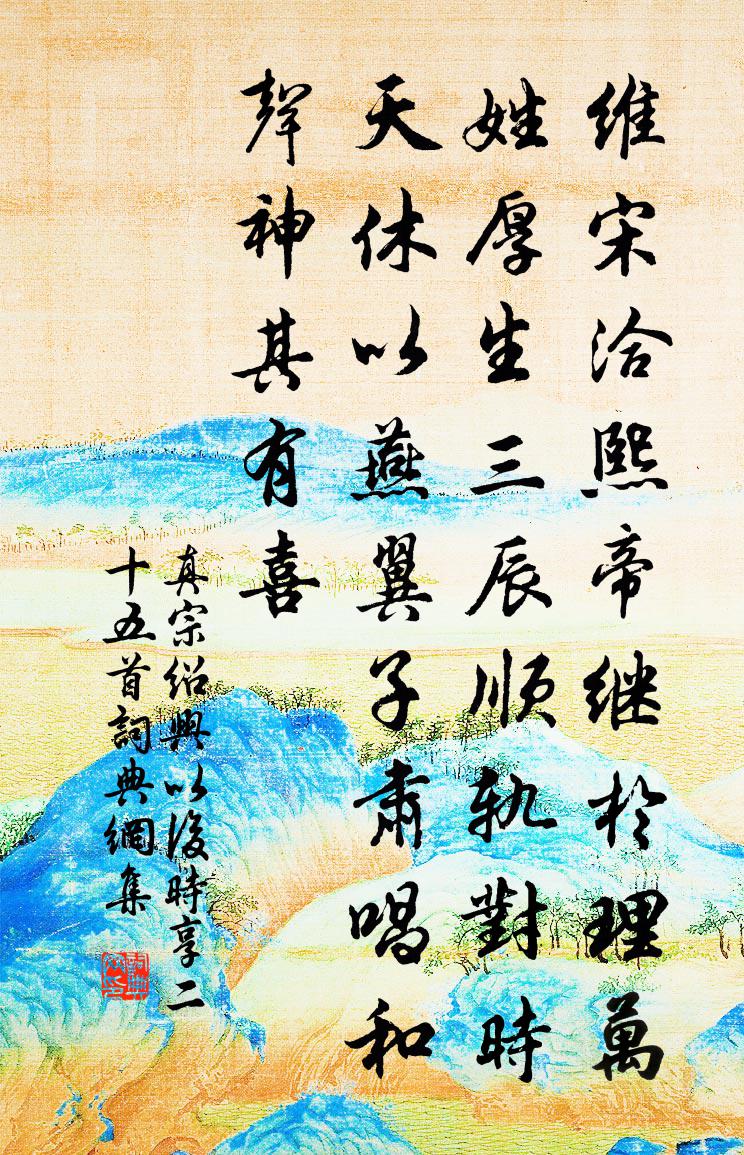 維宋洽熙帝继於理萬
姓厚生三辰順軌對時
天休以燕翼子肅唱和
聲神其有喜
真宗绍興以後時享二
十五首詞典網集